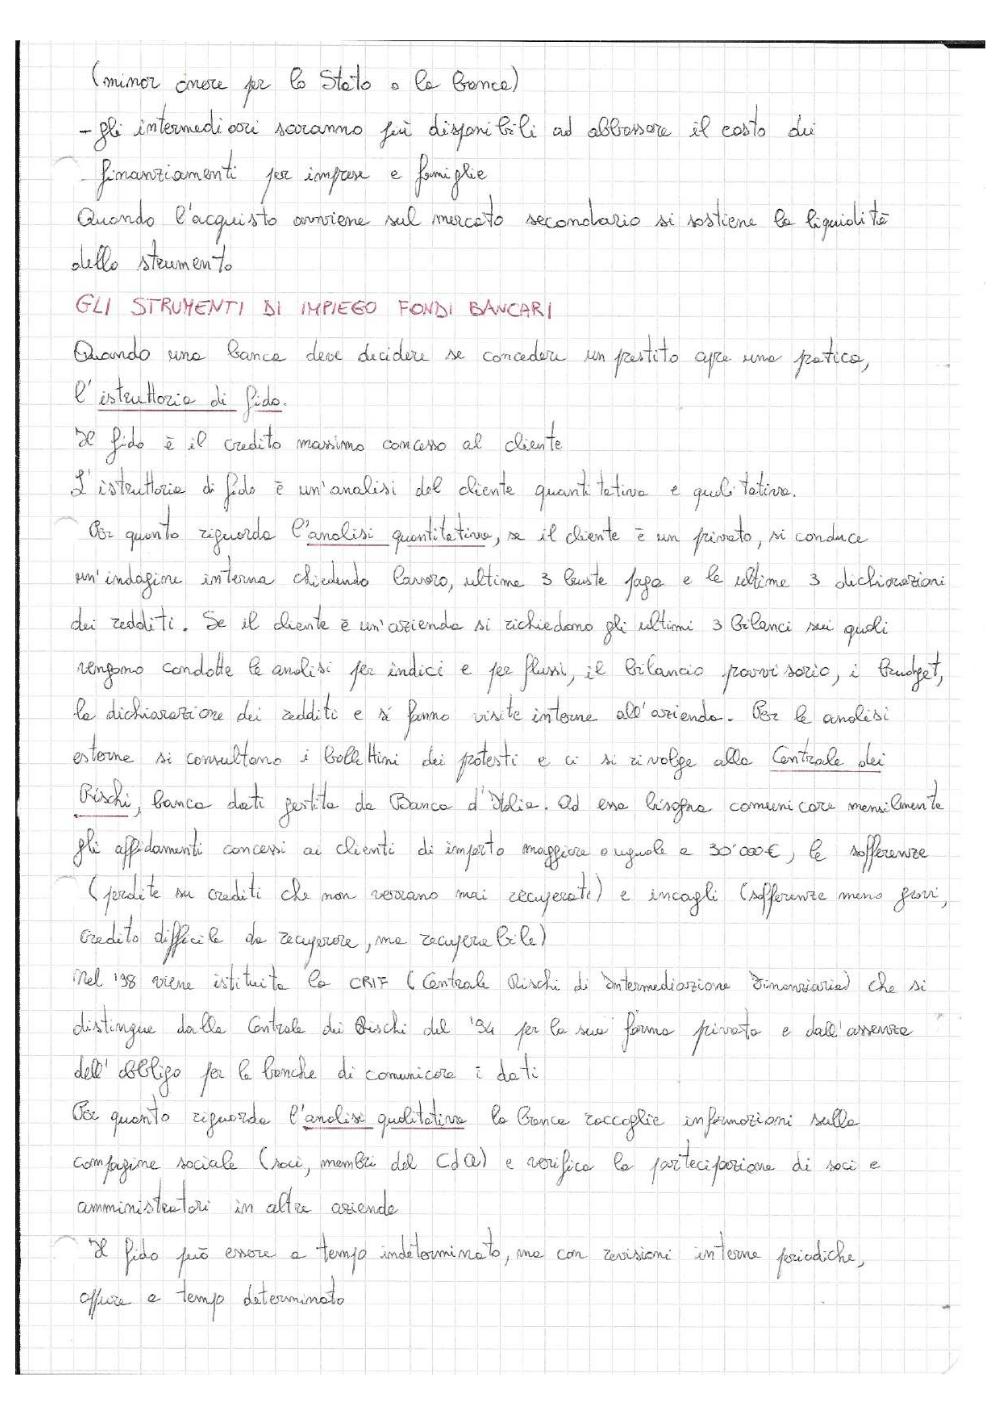 (minor onere per lo Stato o la banca)
- gli intermediari saranno più disponibili ad abbassare il costo dei
finanziamenti per imprese e famiglie
Quando l'acquisto avviene sul mercato secondario si sostiene la liquidità
dello strumento
GLI STRUMENTI DI IMPIEGO FONDI BANCARI
Quando una banca deve decidere se concedere un prestito apre una pratica,
l'istruttoria di fido.
Il fido è il credito massimo concesso al cliente
L'istruttoria di fido è un'analisi del cliente quantitativa e qualitativa.
Per quanto riguarda l'analisi quantitativa, se il cliente è un privato, si conduce
un'indagine interna chiedendo lavoro, ultime 3 buste paga e le ultime 3 dichiarazioni
dei redditi. Se il cliente è un'azienda si richiedono gli ultimi 3 bilanci sui quali
vengono condotte le analisi per indici e per flussi, il bilancio provvisorio, i budget,
la dichiarazione dei redditi e si fanno visite interne all'azienda. Per le analisi
esterne si consultano i bollettini dei protesti e ci si rivolge alla Centrale dei
Rischi, banca dati gestita da Banca d'Italia. Ad essa bisogna comunicare mensilmente
gli affidamenti concessi ai clienti di importo maggiore o uguale a 30'000€, le sofferenze
(perdite su crediti che non verrano mai recuperati) e incagli (sofferenze meno gravi,
credito difficile da recuperare, ma recuperabile)
Nel '98 viene istituita la CRIF (Centrale Rischi di Intermediazione Finanziaria) che si
distingue dalla Centrale dei Rischi del '94 per la sua forma privata e dall'assenza
dell'obbligo per le banche di comunicare i dati
Per quanto riguarda l'analisi qualitativa la Banca raccoglie informazioni sulla
compagine sociale (soci, membri del CdA) e verifica la partecipazione di soci e
amministratori in altre aziende
Il fido può essere a tempo indeterminato, ma con revisioni interne periodiche,
oppure a tempo determinato